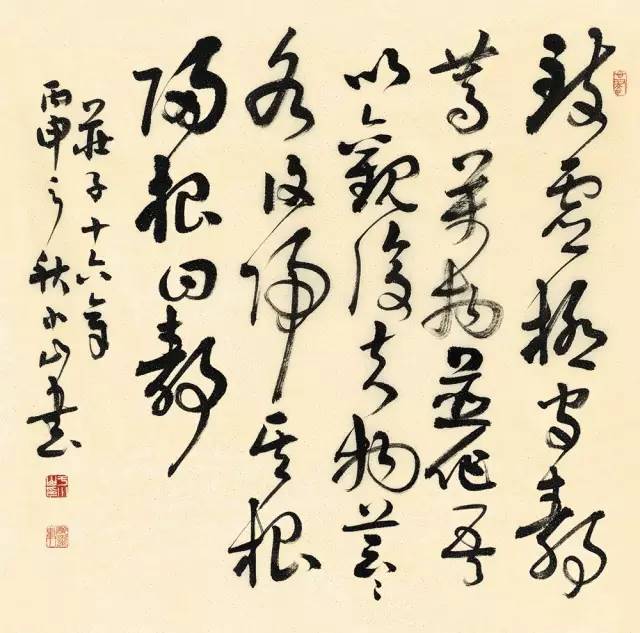 致虛極守靜
篤萬物並作吾
以觀復夫物芸〻
各復歸其根
歸根曰靜
莊子十六章
丙申之秋小山書